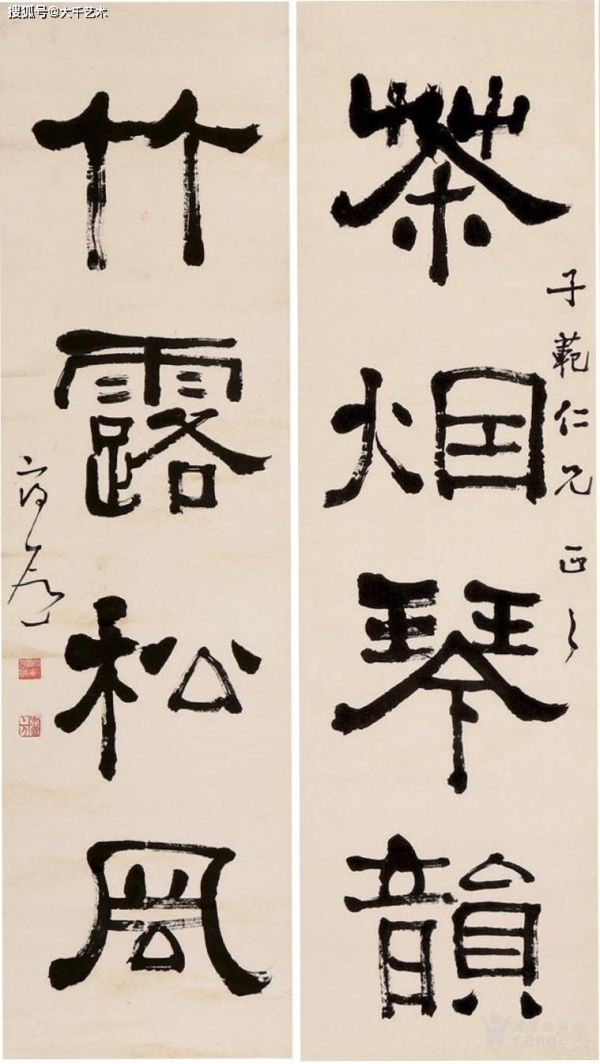 搜狐号@大千艺术
茶烟琴韻
子範仁兄正之
竹露松風